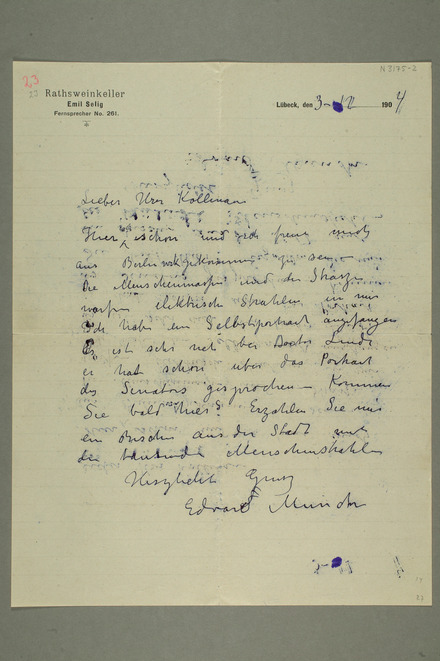 N 3175-2
23
23
Rathsweinkeller
Emil Selig
Fernsprecher No. 261.
Lübeck, den 3- 1904
Lieber Herr Kollmann
Hier ist schön und ich freue mich
aus Berlin zu sein
Die Menschenmassen und der Strasze
warfen elektrische Strahlen in mir
Ich habe ein Selbstportrait angefangen
Es ist sehr nett bei Doctor Linde
er hat schon über das Portrait
des Senators gesprochen – Kommen
Sie bald hier? Erzählen Sie mir
ein Bischen aus der Stadt mit
die tausende Menschenstrahlen
Herzlichste Grusz
Edvard Munch